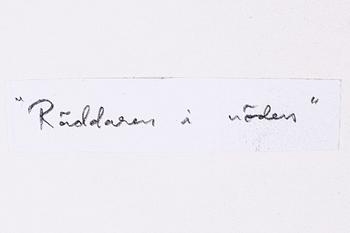 "Räddaren i nöden"